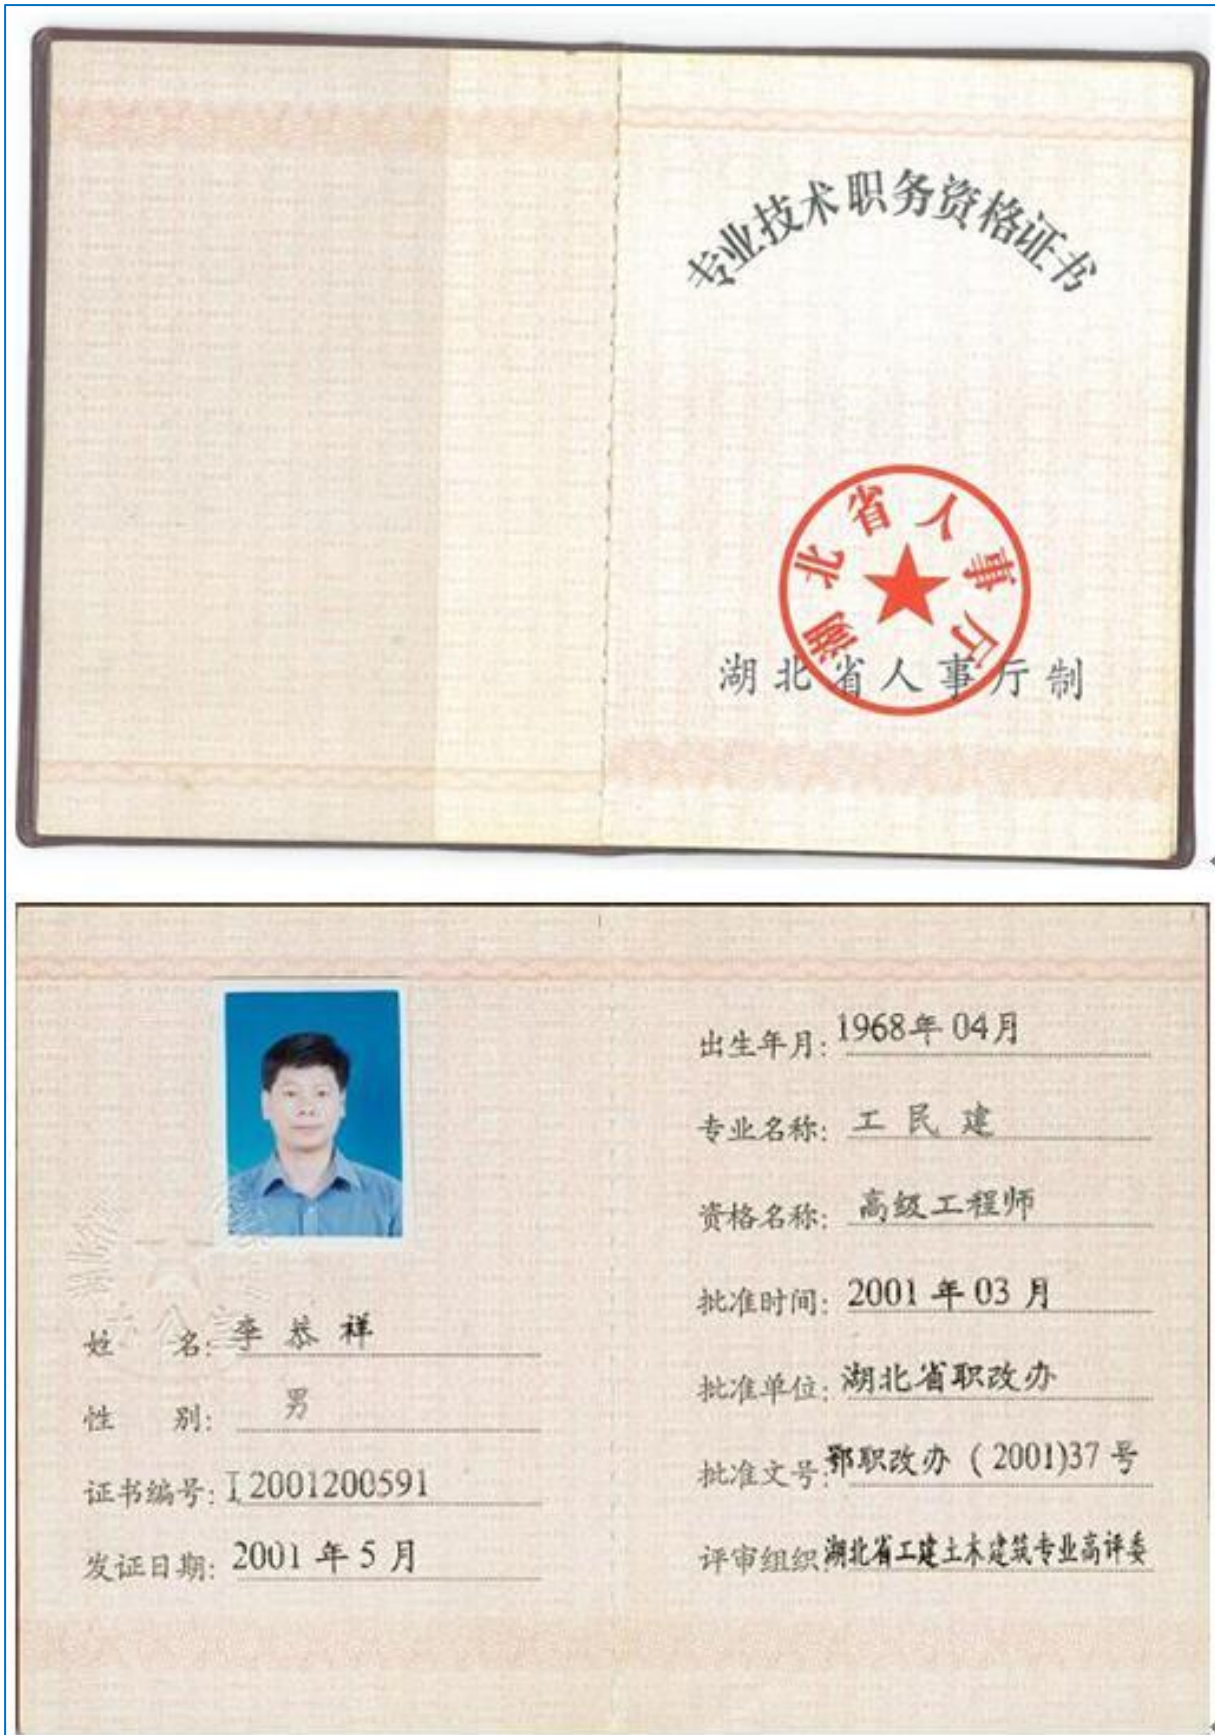 专业技术职务资格证书
湖北省人事厅
湖北省人事厅制
姓 名: 李恭祥
性 别: 男
证书编号: I2001200591
发证日期: 2001年5月
出生年月: 1968年04月
专业名称: 工民建
资格名称: 高级工程师
批准时间: 2001年03月
批准单位: 湖北省职改办
批准文号: 鄂职改办(2001)37号
评审组织: 湖北省工建土木建筑专业高评委